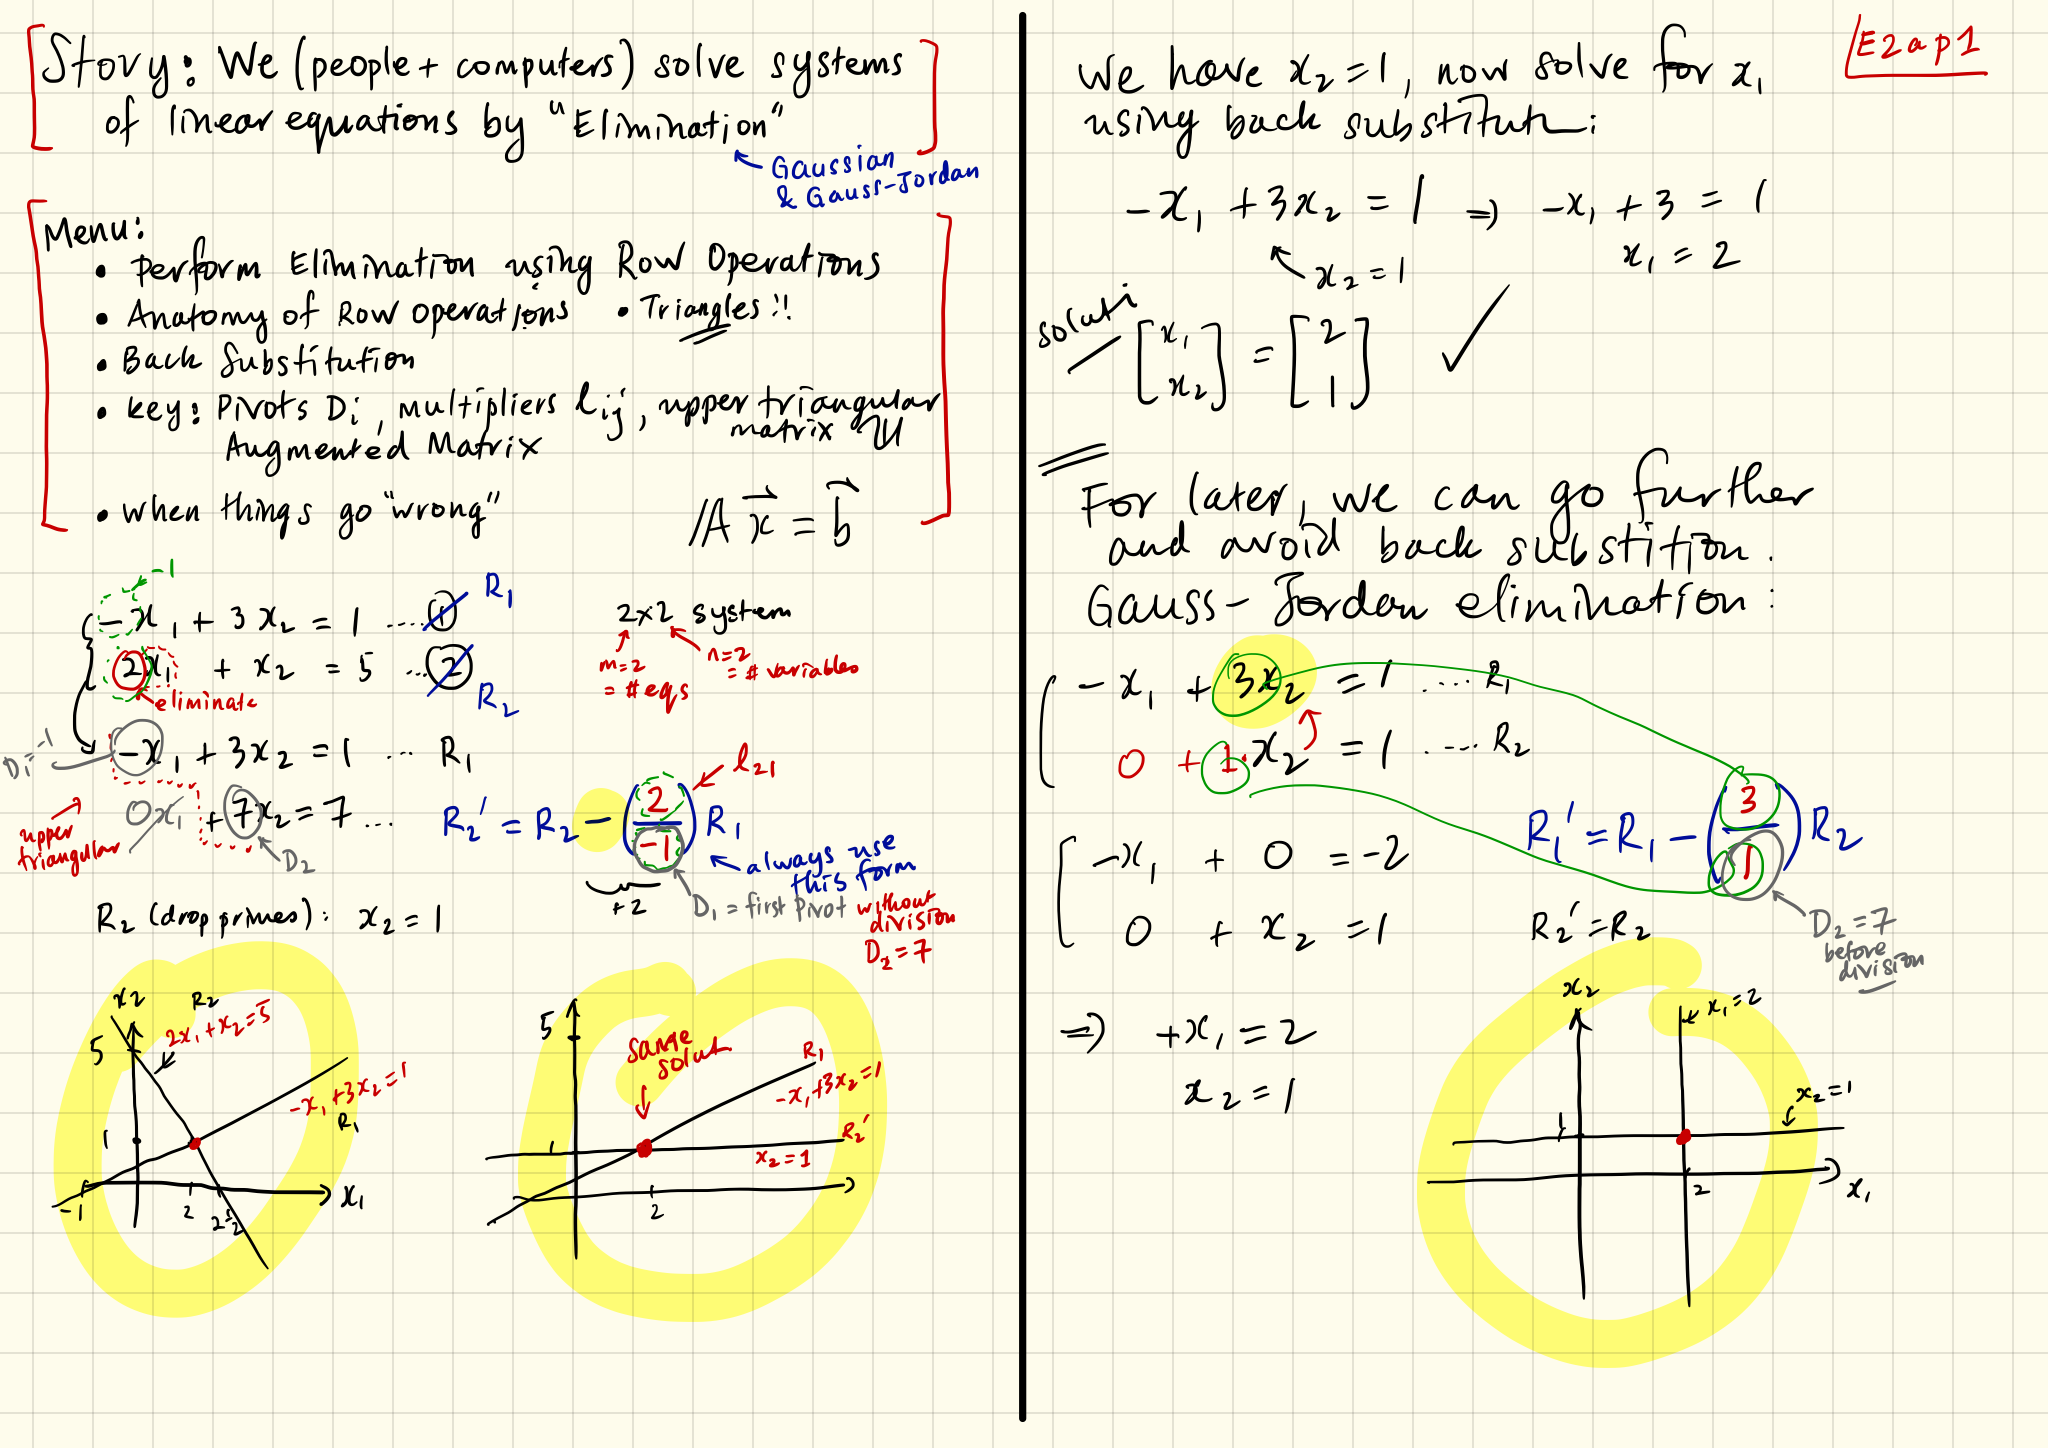 Story: We (people + computers) solve systems
of linear equations by "Elimination"
Gaussian
& Gauss-Jordan
Menu:
• Perform Elimination using Row Operations
• Anatomy of Row operations • Triangles!!
• Back Substitution
• key: Pivots Di, multipliers lij, upper triangular
matrix U
Augmented Matrix
• when things go "wrong"
A x = b
-1
-x1 + 3x2 = 1 ....① R1
2x1 + x2 = 5 ...② R2
eliminate
2x2 system
m=2
= # eqs
n=2
= # variables
D1 = -1
-x1 + 3x2 = 1 ... R1
0x1 + 7x2 = 7 ...
D2
upper
triangular
R2' = R2 - (2/-1) R1
l21
always use
this form
+2
D1 = first pivot
without
division
D2 = 7
R2 (drop primes): x2 = 1
x2
R2
2x1 + x2 = 5
5
-x1 + 3x2 = 1
R1
1
-1
2
2½
x1
5
same
solut
R1
-x1 + 3x2 = 1
R2'
1
x2 = 1
2
E2ap1
We have x2 = 1, now solve for x1
using back substitut:
-x1 + 3x2 = 1 ⇒ -x1 + 3 = 1
x2 = 1
x1 = 2
soluti
[x1 x2] = [2 1] ✓
For later, we can go further
and avoid back substition.
Gauss-Jordan elimination:
-x1 + 3x2 = 1 .... R1
0 + 1·x2 = 1 .... R2
R1' = R1 - (3/1) R2
-x1 + 0 = -2
0 + x2 = 1
R2' = R2
D2 = 7
before
division
⇒ +x1 = 2
x2 = 1
x2
x1 = 2
x2 = 1
1
2
x1